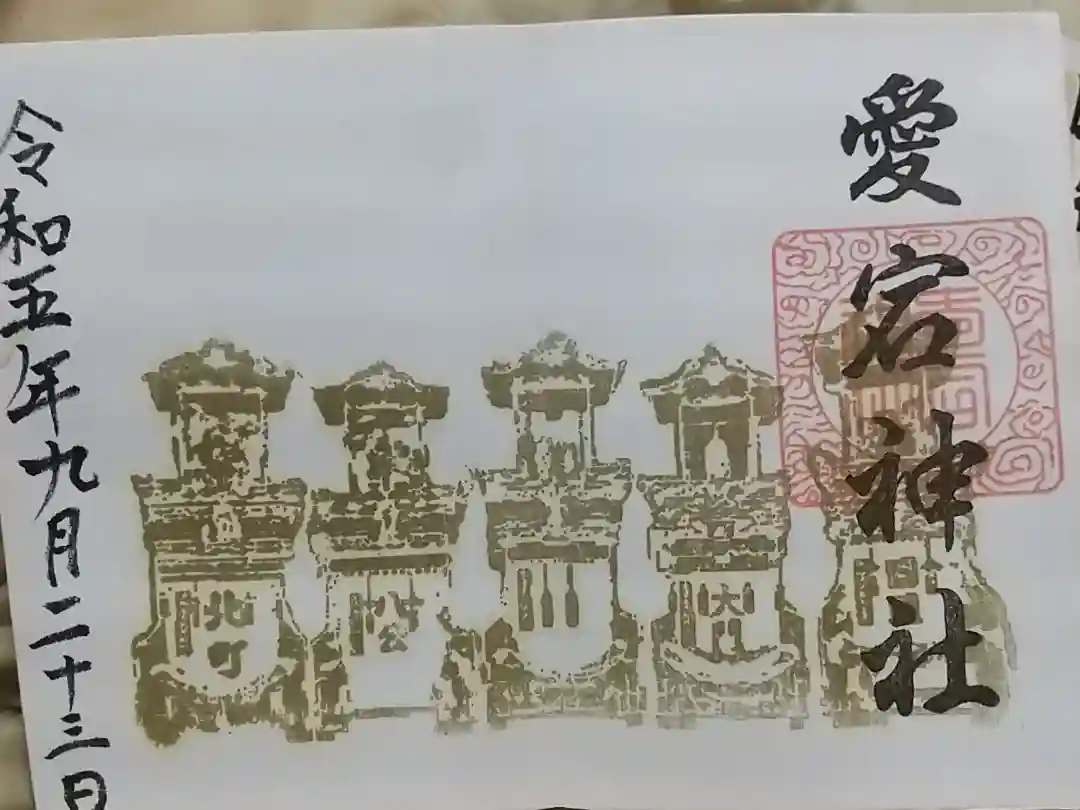 愛宕神社
北町
大八
令和五年九月二十三日